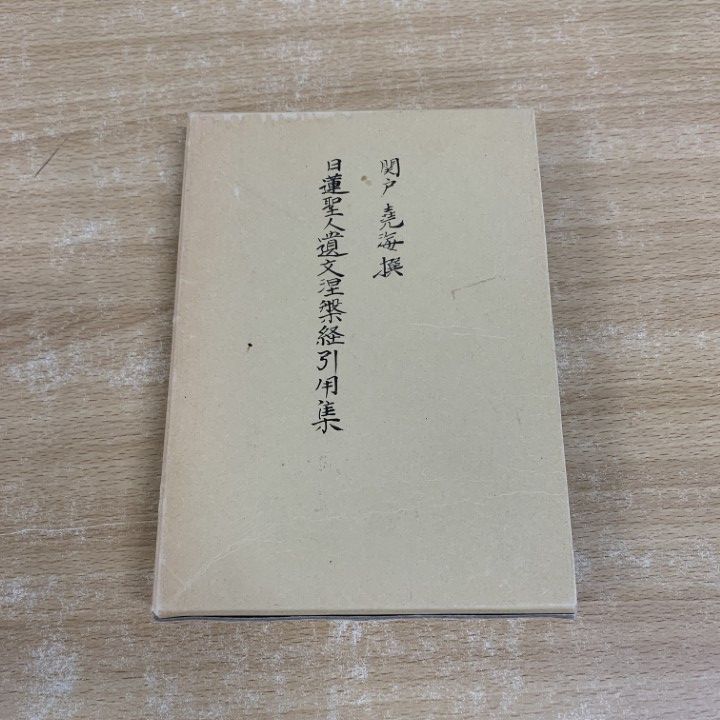 関戸 堯海 撰
日蓮聖人遺文涅槃経引用集